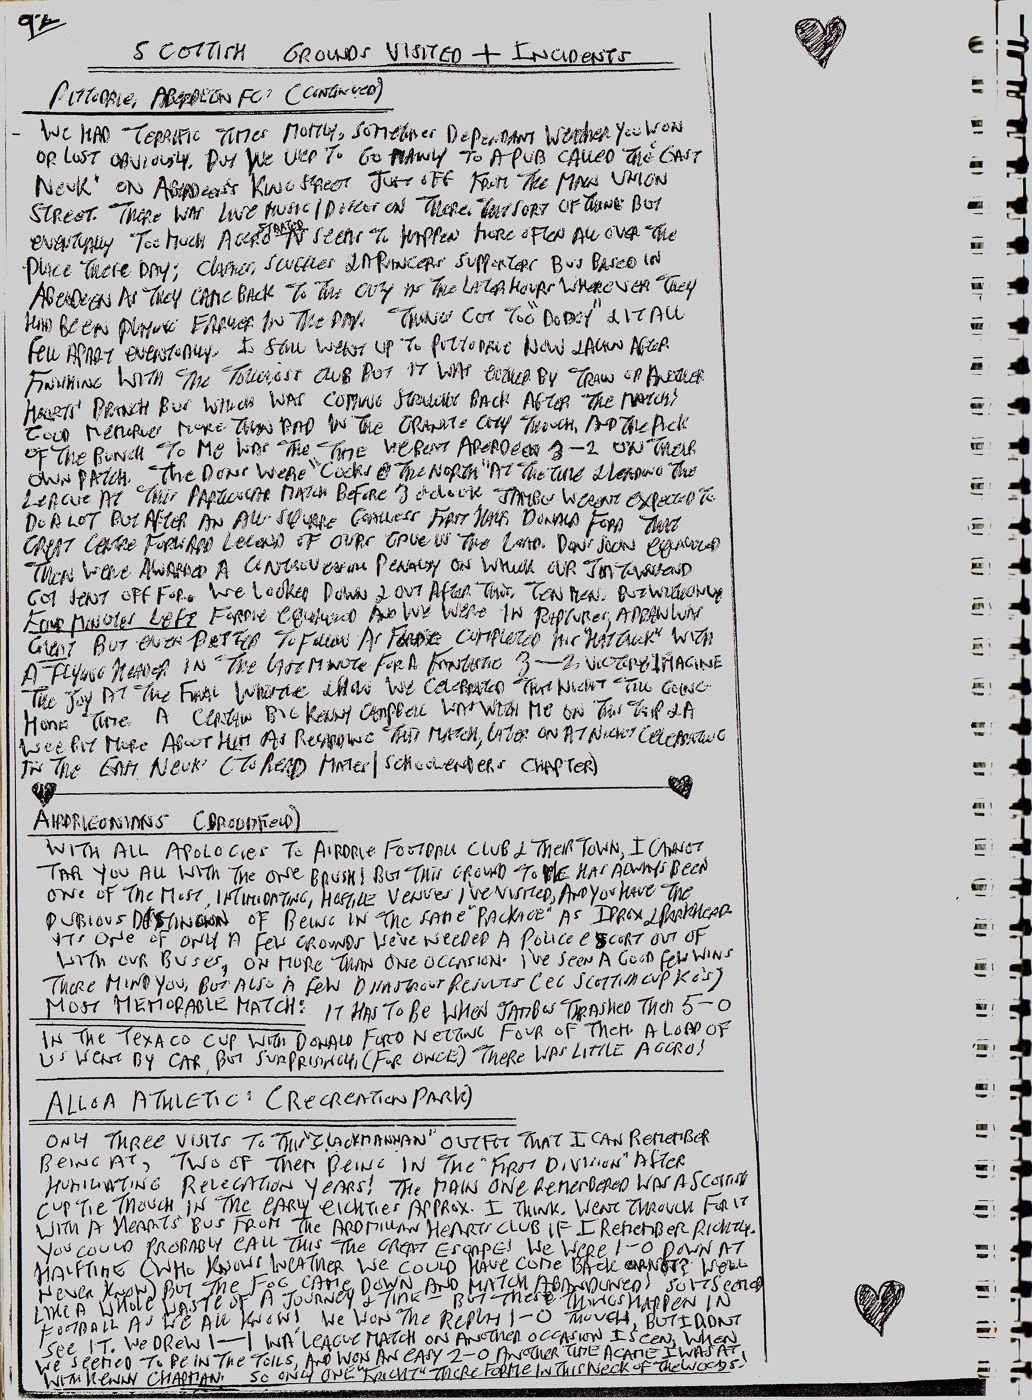 92
SCOTTISH GROUNDS VISITED + INCIDENTS
PITTODRIE, ABERDEEN FC: (CONTINUED)
WE HAD TERRIFIC TIMES MOSTLY, SOMETIMES DEPENDANT WEATHER YOU WON
OR LOST OBVIOUSLY. BUT WE USED TO GO MAINLY TO A PUB CALLED THE "EAST
NEUK" ON ABERDEEN'S KING STREET JUST OFF FROM THE MAIN UNION
STREET. THERE WAS LIVE MUSIC/DISCO ON THERE, THAT SORT OF THING BUT
EVENTUALLY TOO MUCH AGGRO STARTED AS SEEMS TO HAPPEN MORE OFTEN ALL OVER THE
PLACE THESE DAYS; CLASHES, SCUFFLES & A RANGERS SUPPORTERS BUS BASED IN
ABERDEEN AS THEY CAME BACK TO THE CITY IN THE LATER HOURS WHEREVER THEY
HAD BEEN PLAYING EARLIER IN THE DAY. THINGS GOT TOO "DODGY" & IT ALL
FELL APART EVENTUALLY. I STILL WENT UP TO PITTODRIE NOW & AGAIN AFTER
FINISHING WITH THE CLUB BUT IT WAS EITHER BY TRAIN OR ANOTHER
HEARTS' BRANCH BUS WHICH WAS COMING STRAIGHT BACK AFTER THE MATCH!
GOOD MEMORIES MORE THAN BAD IN THE GRANITE CITY THOUGH, AND THE PICK
OF THE BUNCH TO ME WAS THE TIME WE BEAT ABERDEEN 3-2 ON THEIR
OWN PATCH. THE DONS WERE "COCKS O THE NORTH" AT THE TIME & LEADING THE
LEAGUE AT THIS PARTICULAR MATCH BEFORE 3 O'CLOCK JAMBOS WERENT EXPECTED TO
DO A LOT BUT AFTER AN ALL-SQUARE GOALLESS FIRST HALF DONALD FORD THAT
GREAT CENTRE FORWARD LEGEND OF OURS GAVE US THE LEAD. DONS SOON EQUALISED
THEN WERE AWARDED A CONTROVERSIAL PENALTY ON WHICH OUR JIM TOWNSEND
GOT SENT OFF FOR. WE LOOKED DOWN & OUT AFTER THAT, TEN MEN. BUT WITH ONLY
FOUR MINUTES LEFT FORDIE EQUALISED AND WE WERE IN RAPTURES, A DRAW WAS
GREAT BUT EVEN BETTER TO FOLLOW AS FORDIE COMPLETED HIS "HATTRICK" WITH
A FLYING HEADER IN THE LAST MINUTE FOR A FANTASTIC 3-2 VICTORY! IMAGINE
THE JOY AT THE FINAL WHISTLE & HOW WE CELEBRATED THAT NIGHT TILL GOING
HOME TIME. A CERTAIN BIG KENNY CAMPBELL WAS WITH ME ON THIS TRIP & A
WEE BIT MORE ABOUT HIM AS REGARDING THIS MATCH, LATER ON AT NIGHT CELEBRATING
IN THE EAST NEUK (TO READ MATES/SCHOOL CHAPTER)
AIRDRIEONIANS (BROOMFIELD)
WITH ALL APOLOGIES TO AIRDRIE FOOTBALL CLUB & THEIR TOWN, I CANNOT
TAR YOU ALL WITH THE ONE BRUSH! BUT THIS GROUND TO ME HAS ALWAYS BEEN
ONE OF THE MOST, INTIMIDATING, HOSTILE VENUES I'VE VISITED, AND YOU HAVE THE
DUBIOUS DISTINCTION OF BEING IN THE SAME "PACKAGE" AS IBROX & PARKHEAD.
ITS ONE OF ONLY A FEW GROUNDS WE'VE NEEDED A POLICE ESCORT OUT OF
WITH OUR BUSES, ON MORE THAN ONE OCCASION. I'VE SEEN A GOOD FEW WINS
THERE MIND YOU, BUT ALSO A FEW DISASTROUS RESULTS (EG SCOTTISH CUP K.O's)
MOST MEMORABLE MATCH: IT HAS TO BE WHEN JAMBOS THRASHED THEM 5-0
IN THE TEXACO CUP WITH DONALD FORD NETTING FOUR OF THEM. A LOAD OF
US WENT BY CAR, BUT SURPRISINGLY, (FOR ONCE) THERE WAS LITTLE AGGRO!
ALLOA ATHLETIC: (RECREATION PARK)
ONLY THREE VISITS TO THIS "CLACKMANNAN" OUTFIT THAT I CAN REMEMBER
BEING AT, TWO OF THEM BEING IN THE "FIRST DIVISION" AFTER
HUMILIATING RELEGATION YEARS! THE MAIN ONE REMEMBERED WAS A SCOTTISH
CUP TIE THOUGH IN THE EARLY EIGHTIES APPROX. I THINK. WENT THROUGH FOR IT
WITH A HEARTS BUS FROM THE ARDMILLAN HEARTS CLUB IF I REMEMBER RIGHTLY.
YOU COULD PROBABLY CALL THIS THE GREAT ESCAPE! WE WERE 1-0 DOWN AT
HALFTIME (WHO KNOWS WEATHER WE COULD HAVE COME BACK OR NOT? WE'LL
NEVER KNOW) BUT THE FOG CAME DOWN AND MATCH ABANDONED! SO IT SEEMED
LIKE A WHOLE WASTE OF A JOURNEY & TIME - BUT THESE THINGS HAPPEN IN
FOOTBALL AS WE ALL KNOW! WE WON THE REPLAY 1-0 THOUGH, BUT I DIDNT
SEE IT. WE DREW 1-1 IN A LEAGUE MATCH ON ANOTHER OCCASION I SEEN, WHEN
WE SEEMED TO BE IN THE TOILS, AND WON AN EASY 2-0 ANOTHER TIME AGAME I WAS AT,
WITH KENNY CHAPMAN. SO ONLY ONE "FRIGHT" THERE FOR ME IN THIS NECK OF THE WOODS!